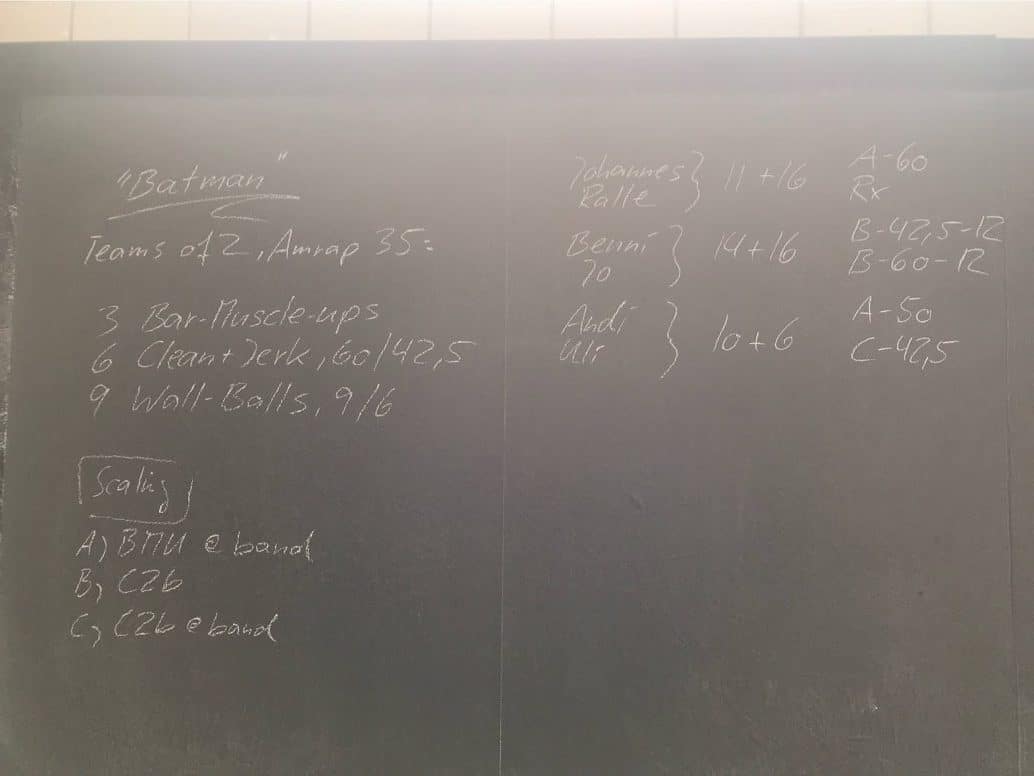 "Batman"
Teams of 2, Amrap 35:
3 Bar-Muscle-ups
6 Clean+Jerk, 60/42,5
9 Wall-Balls, 9/6
Scaling
A) BMU @ band
B) C2b
C) C2b @ band
Johannes } 11+16 A-60
Ralle Rx
Benni } 14+16 B-42,5-12
Jo B-60-12
Andi } 10+6 A-50
Uli C-42,5